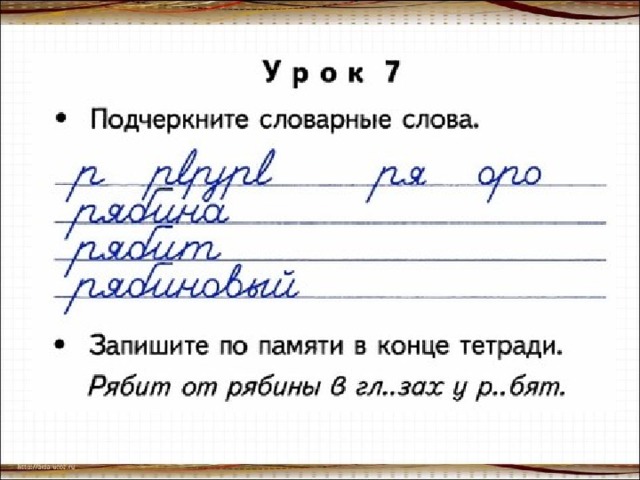 Урок 7
• Подчеркните словарные слова.
р рврурв ря оро
рябина
рябит
рябиновый
• Запишите по памяти в конце тетради.
Рябит от рябины в гл..зах у р..бят.